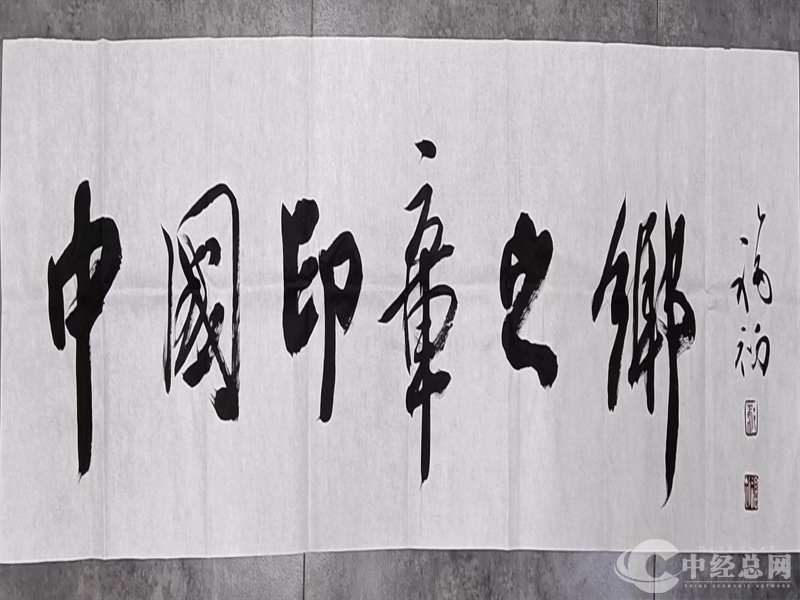 中國印章之鄉
中经总网
CHINA ECONOMIC NETWORK